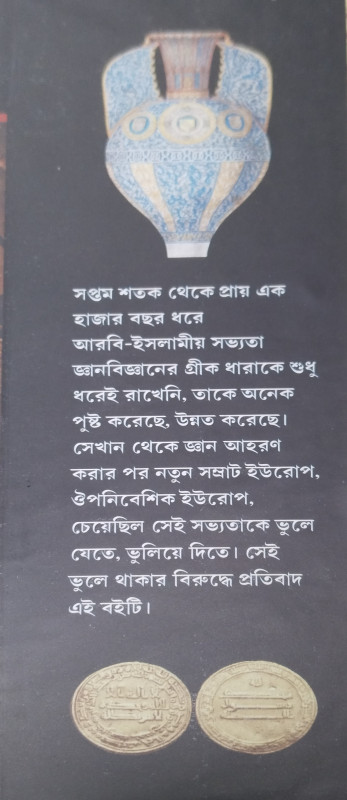 সপ্তম শতক থেকে প্রায় এক
হাজার বছর ধরে
আরবি-ইসলামীয় সভ্যতা
জ্ঞানবিজ্ঞানের গ্রীক ধারাকে শুধু
ধরেই রাখেনি, তাকে অনেক
পুষ্ট করেছে, উন্নত করেছে।
সেখান থেকে জ্ঞান আহরণ
করার পর নতুন সম্রাট ইউরোপ,
ঔপনিবেশিক ইউরোপ,
চেয়েছিল সেই সভ্যতাকে ভুলে
যেতে, ভুলিয়ে দিতে। সেই
ভুলে থাকার বিরুদ্ধে প্রতিবাদ
এই বইটি।